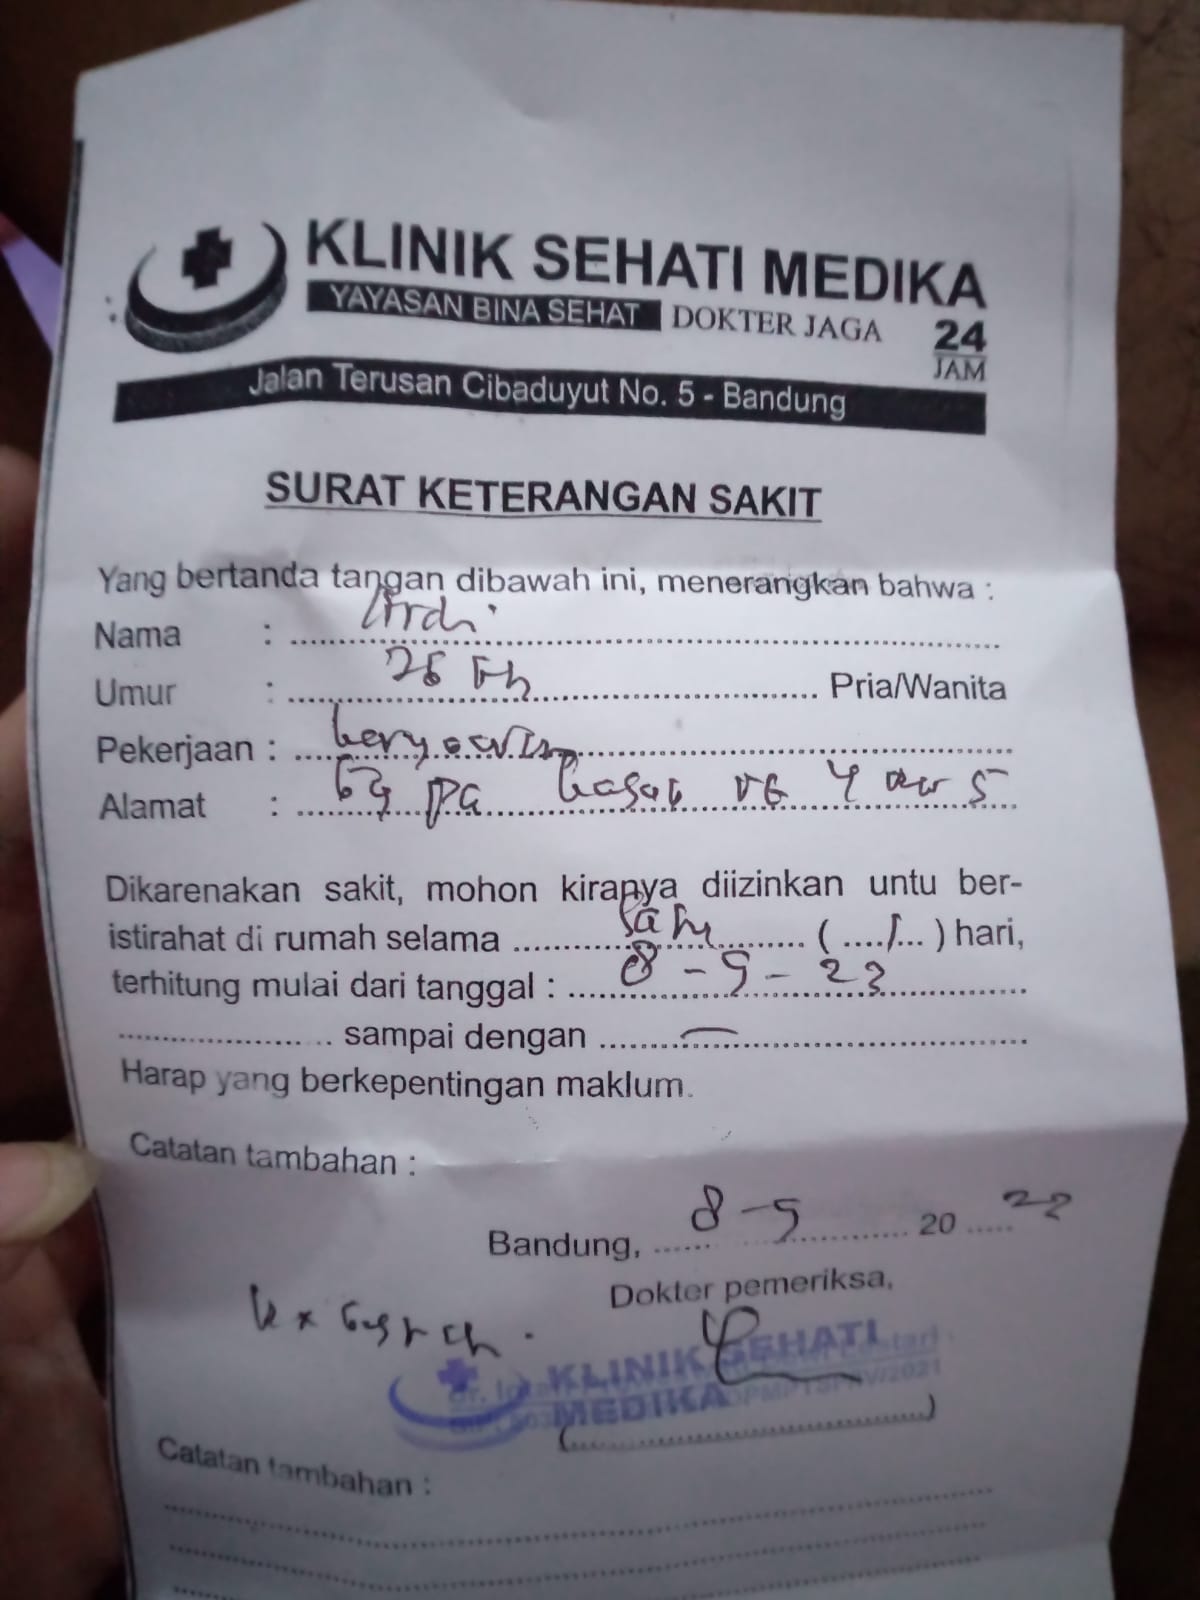 KLINIK SEHATI MEDIKA
YAYASAN BINA SEHAT DOKTER JAGA 24 JAM
Jalan Terusan Cibaduyut No. 5 - Bandung
SURAT KETERANGAN SAKIT
Yang bertanda tangan dibawah ini, menerangkan bahwa :
Nama :
Umur : 26 th Pria/Wanita
Pekerjaan :
Alamat : 4 5
Dikarenakan sakit, mohon kiranya diizinkan untu ber-
istirahat di rumah selama satu ( 1 ) hari,
terhitung mulai dari tanggal : 8 - 9 - 23
sampai dengan
Harap yang berkepentingan maklum.
Catatan tambahan :
Bandung, 8-9 20
Dokter pemeriksa,
KLINIK SEHATI
MEDIKA
Catatan tambahan :